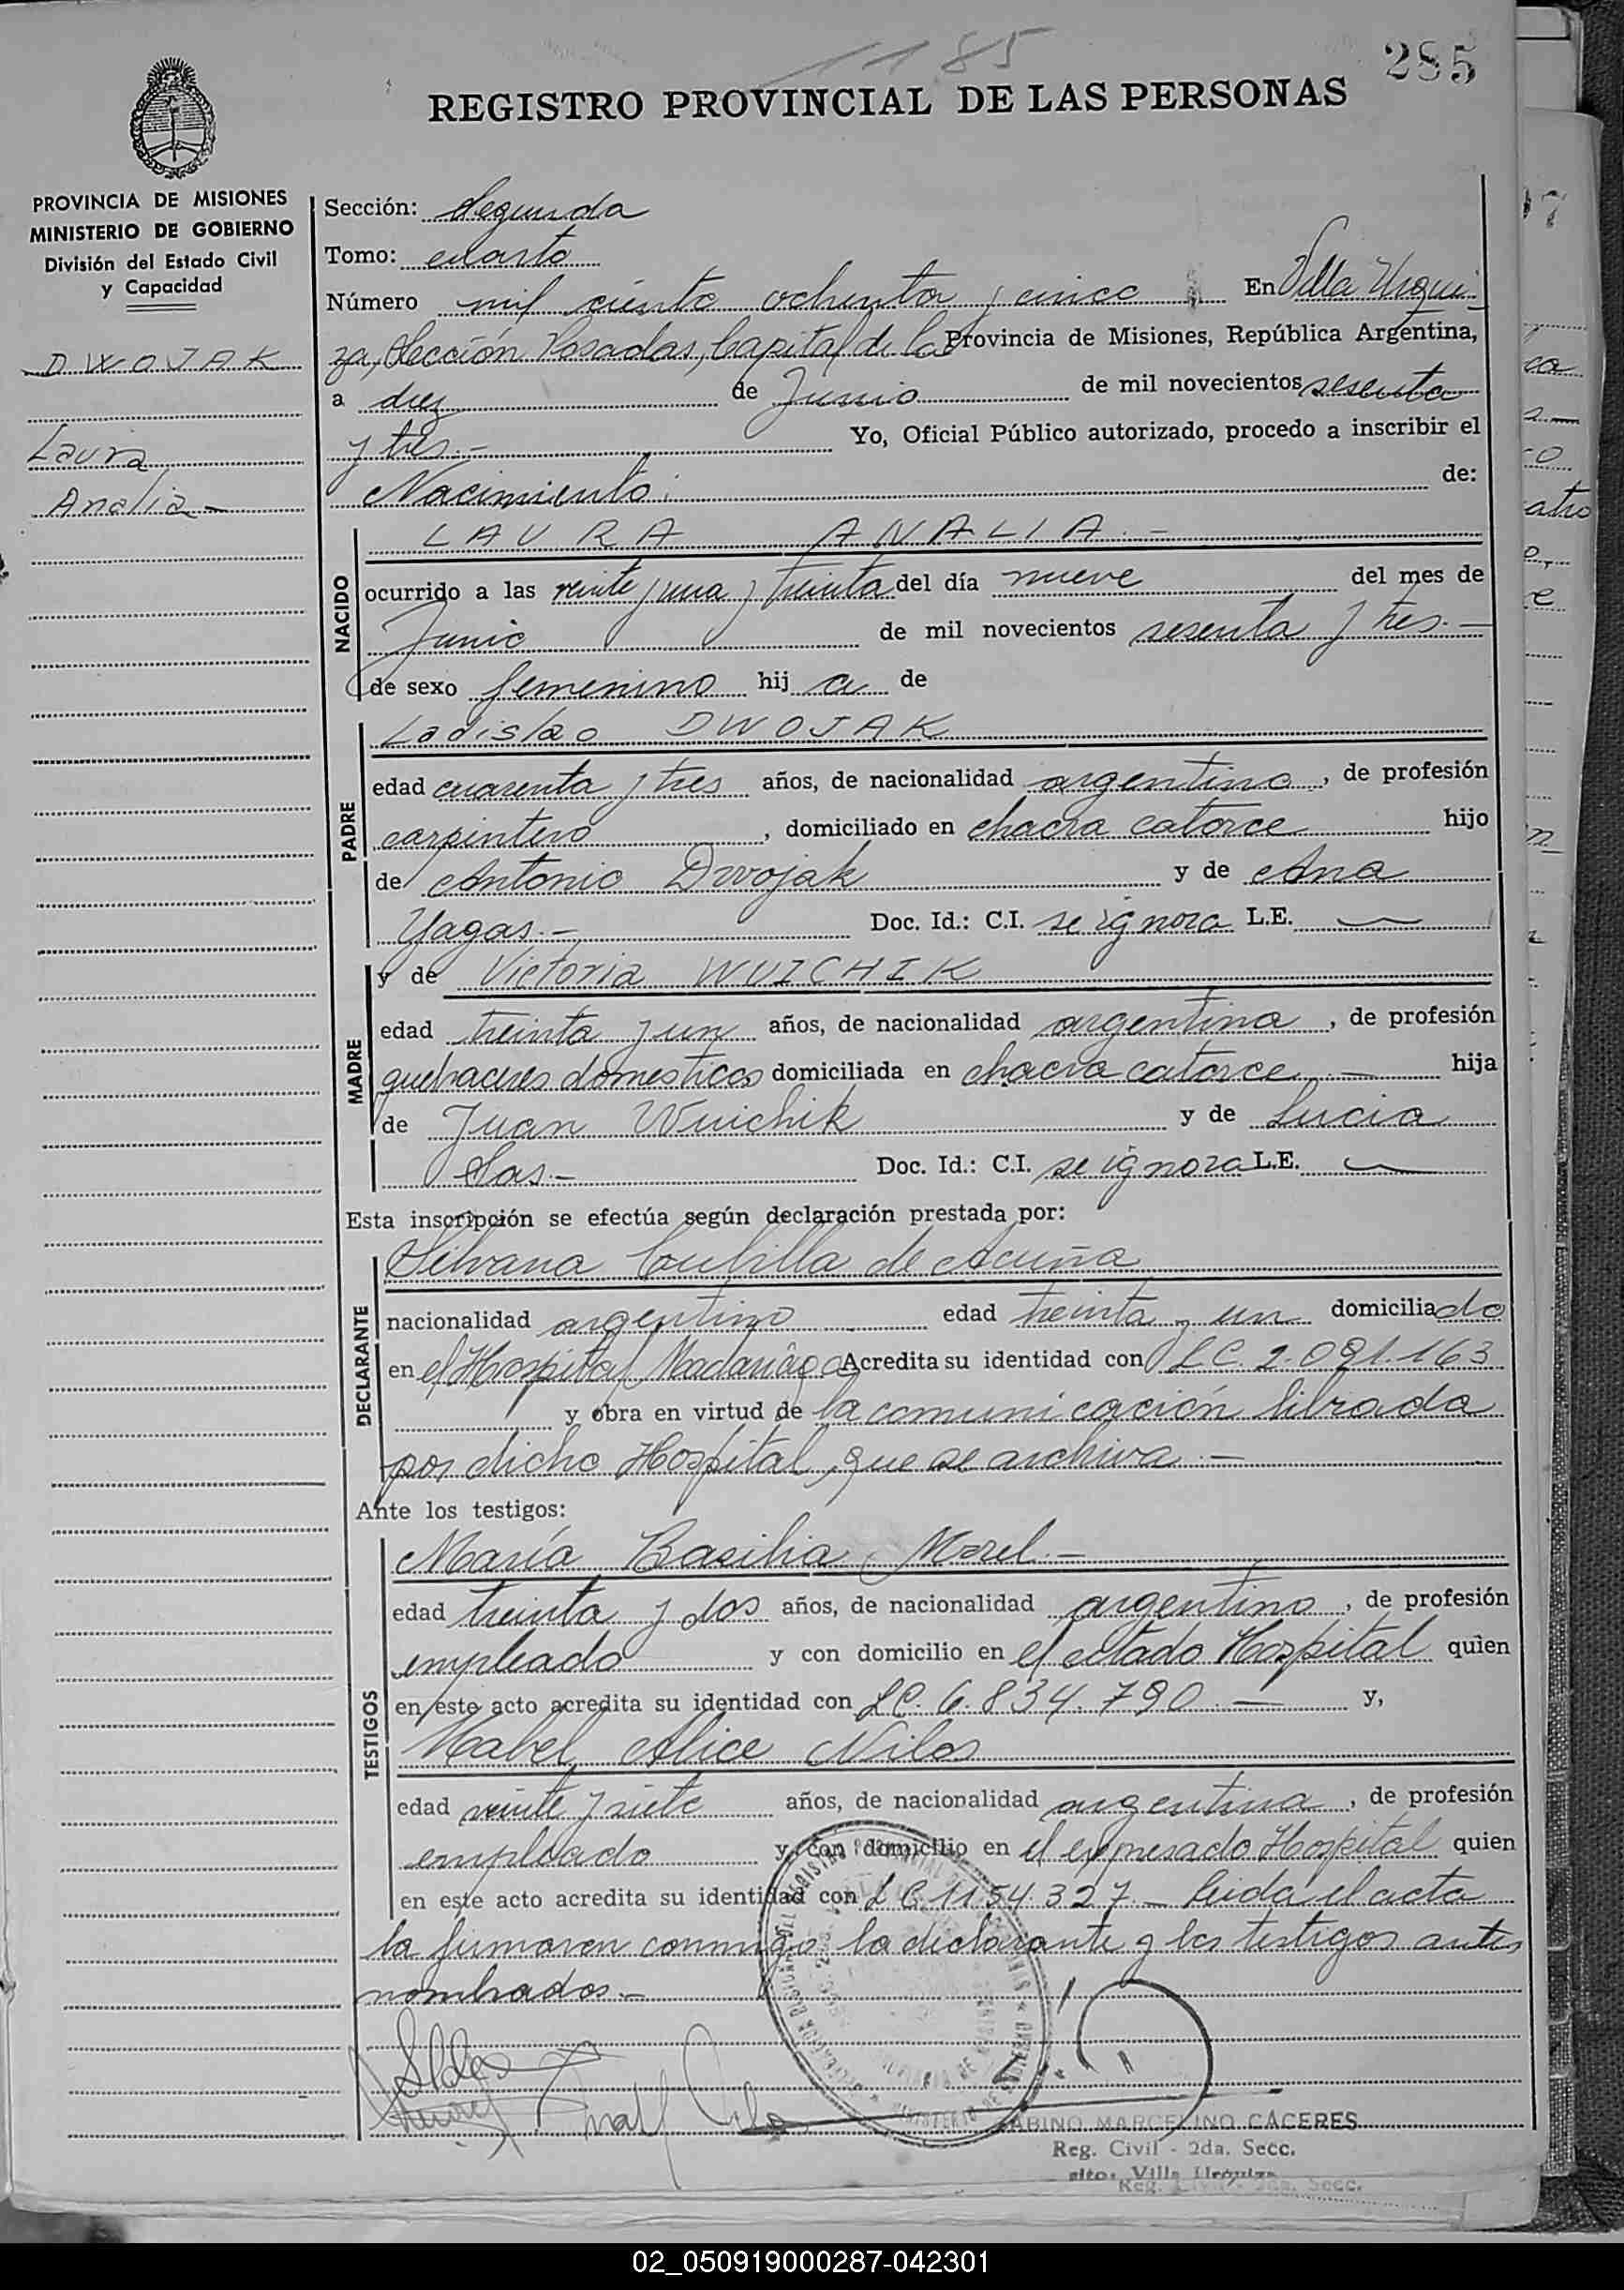 1185
285
REGISTRO PROVINCIAL DE LAS PERSONAS
PROVINCIA DE MISIONES
MINISTERIO DE GOBIERNO
División del Estado Civil
y Capacidad
DWOJAK
Laura
Analia -
Sección: Segunda
Tomo: cuarto
Número mil ciento ochenta y cinco En Villa Urqui-
za, Sección Posadas, Capital de la Provincia de Misiones, República Argentina,
a diez de Junio de mil novecientos sesenta
y tres.- Yo, Oficial Público autorizado, procedo a inscribir el
Nacimiento de:
NACIDO
LAURA ANALIA.-
ocurrido a las veinte y una y treinta del día nueve del mes de
Junio de mil novecientos sesenta y tres.-
de sexo femenino hij a de
PADRE
Ladislao DWOJAK
edad cuarenta y tres años, de nacionalidad argentino, de profesión
carpintero, domiciliado en chacra catorce hijo
de Antonio Dwojak y de Ana
Yagas.- Doc. Id.: C.I. se ignora L.E. —
MADRE
y de Victoria WUICHIK
edad treinta y un años, de nacionalidad argentina, de profesión
quehaceres domesticos domiciliada en chacra catorce - hija
de Juan Wuichik y de Lucia
Sas.- Doc. Id.: C.I. se ignora L.E. —
Esta inscripción se efectúa según declaración prestada por:
DECLARANTE
Silvana Cubilla de Acuña
nacionalidad argentino edad treinta y un domiciliado
en el Hospital Madariaga Acredita su identidad con LC. 2.091.163
y obra en virtud de la comunicación librada
por dicho Hospital, que se archiva.-
Ante los testigos:
TESTIGOS
María Basilia Morel.-
edad treinta y dos años, de nacionalidad argentino, de profesión
empleado y con domicilio en el citado Hospital quien
en este acto acredita su identidad con LC. 6.834.790.- y,
Mabel Alice Nilos
edad veinte y siete años, de nacionalidad argentina, de profesión
empleado y con domicilio en el expresado Hospital quien
en este acto acredita su identidad con L C. 1154.327.- Leida el acta
la firmaron conmigo la declarante y los testigos antes
nombrados.-
SABINO MARCELINO CACERES
Reg. Civil - 2da. Secc.
Villa Urquiza
Reg. Civil - 2da. Secc.
02_050919000287-042301